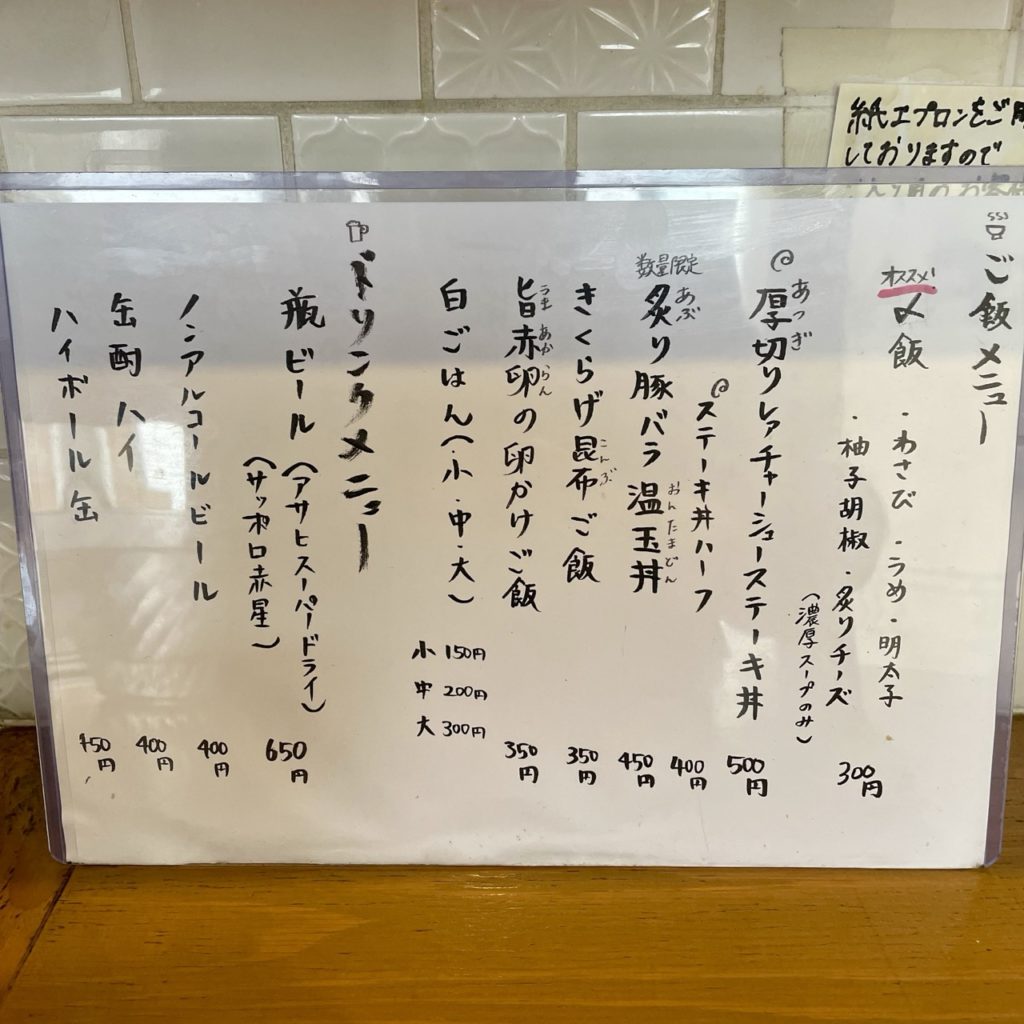 紙エプロンをご用
しておりますので
ご飯メニュー
オススメ!
〆飯
・わさび・うめ・明太子
・柚子胡椒・炙りチーズ
(濃厚スープのみ)
300円
あつぎ
厚切りレアチャーシューステーキ丼
500円
ステーキ丼ハーフ
400円
数量限定
あぶ おんたまどん
炙り豚バラ温玉丼
450円
こんぶ
きくらげ昆布ご飯
350円
うま あからん
旨赤卵の卵かけご飯
350円
白ごはん(小・中・大)
小 150円
中 200円
大 300円
ドリンクメニュー
瓶ビール(アサヒスーパードライ)
(サッポロ赤星)
650円
ノンアルコールビール
400円
缶酎ハイ
400円
ハイボール缶
450円